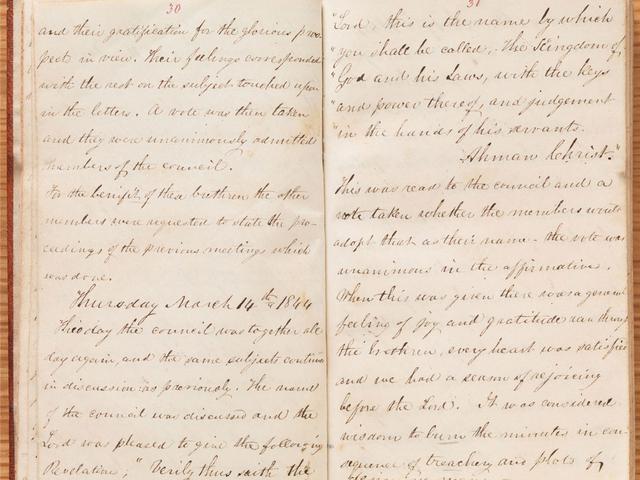 30
and their gratification for the glorious pros-
pect in view. Their feelings corresponded
with the rest on the subject touched upon
in the letters. A vote was then taken
and they were unanimously admitted
members of the council.
For the benifit of these brethren the other
members were requested to state the pro-
ceedings of the previous meetings which
was done.
Thursday March 14th 1844
This day the council was together all
day again, and the same subjects continued
in discussion as previously. The name
of the council was discussed and the
Lord was pleased to give the following
Revelation; "Verily thus saith the
31
"Lord, this is the name by which
"you shall be called, The Kingdom of
"God and his Laws, with the keys
"and power thereof, and judgement
"in the hands of his servants.
Ahman Christ."
This was read to the council and a
vote taken whether the members would
adopt that as their name - the vote was
unanimous in the affirmative.
When this was given there was a general
feeling of joy and gratitude ran through
the brethren, every heart was satisfied
and we had a season of rejoicing
before the Lord. It was considered
wisdom to burn the minutes in con-
sequence of treachery and plots of